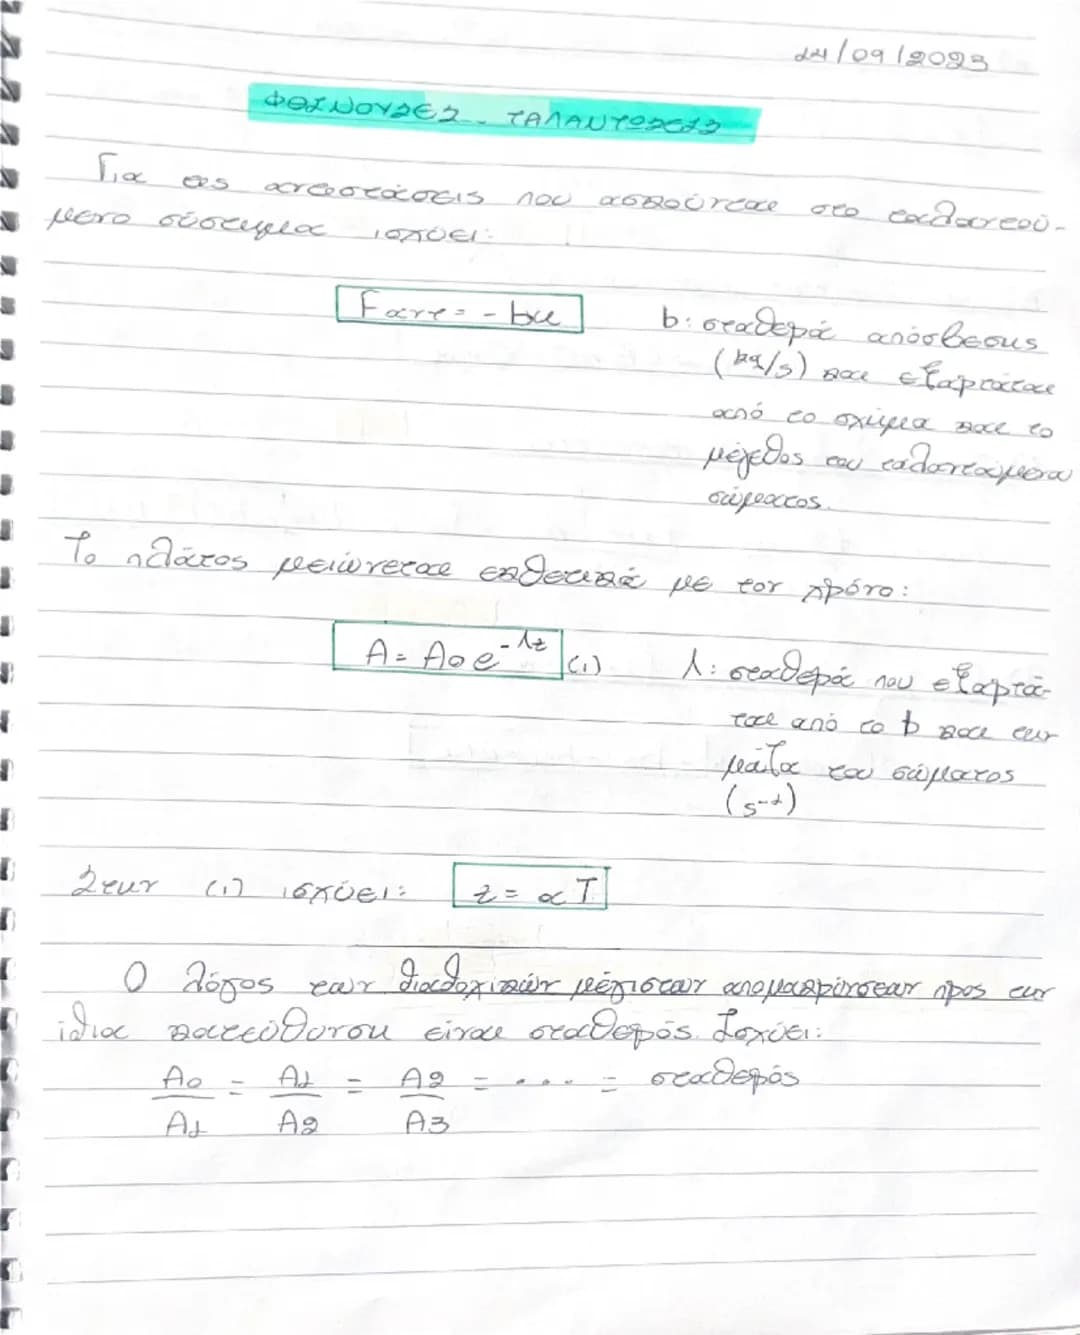 24/09/2023
ΦΘΙΝΟΥΣΕΣ ΤΑΛΑΝΤΩΣΕΙΣ
Για τις αντιστάσεις που ασκούνται στο ταλαντού-
μενο σύστημα ισχύει:
Fαντ = - bu
b: σταθερά απόσβεσης
(kg/s) και εξαρτάται
από το σχήμα και το
μέγεθος του ταλαντούμενου
σώματος.
Το πλάτος μειώνεται εκθετικά με τον χρόνο:
A = A0 e^-Λt (1)
Λ: σταθερά που εξαρτά-
ται από το b και την
μάζα του σώματος
(s^-1)
Στην (1) ισχύει: t = α T
Ο λόγος των διαδοχικών μέγιστων απομακρύνσεων προς την
ίδια κατεύθυνση είναι σταθερός. Ισχύει:
A0/A1 = A1/A2 = A2/A3 = .... = σταθερός